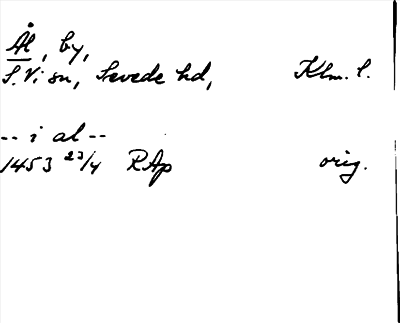 Ål, by,
S. Vi sn, Sevede hd, Klm. l.
-- i al --
1453 23/4 RAp orig.